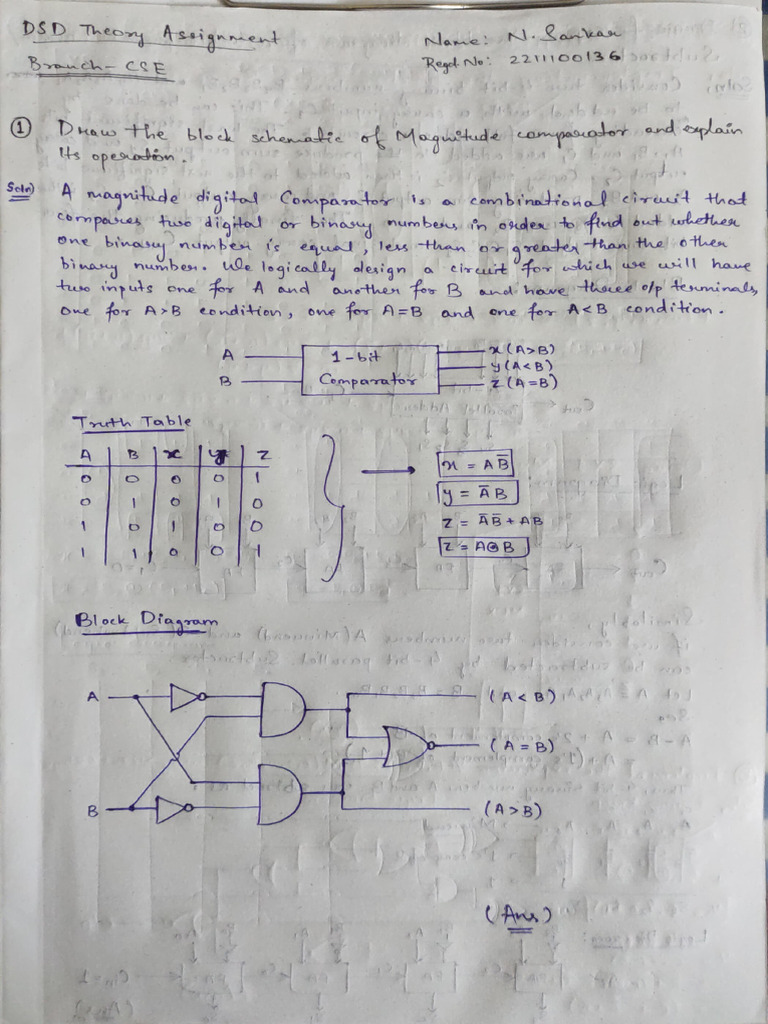 DSD Theory Assignment
Name: N. Sankar
Branch- CSE
Regd No: 2211100136
① Draw the block schematic of Magnitude comparator and explain
its operation.
Soln) A magnitude digital Comparator is a combinational circuit that
compares two digital or binary numbers in order to find out whether
one binary number is equal, less than or greater than the other
binary number. We logically design a circuit for which we will have
two inputs one for A and another for B and have three o/p terminals,
one for A>B condition, one for A=B and one for A<B condition.
A
B
1-bit
Comparator
x (A>B)
y (A<B)
z (A=B)
Truth Table
A B x y z
0 0 0 0 1
0 1 0 1 0
1 0 1 0 0
1 1 0 0 1
x = AB̅
y = A̅B
z = A̅B̅ + AB
z = A⊙B
Block Diagram
A
B
(A < B)
(A = B)
(A > B)
(Ans)